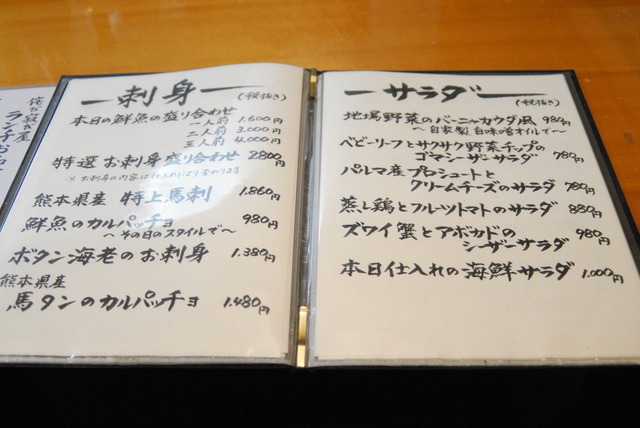 俺が寂が屋
ランチお品
刺身
(税抜き)
本日の鮮魚の盛り合わせ
一人前 1.600円
二人前 3.000円
三人前 4.000円
特選 お刺身 盛り合わせ 2800円
※お刺身の内容は仕入れにより変わります
熊本県産 特上馬刺 1.860円
鮮魚のカルパッチョ 980円
～その日のスタイルで～
ボタン海老のお刺身 1.380円
熊本県産
馬タンのカルパッチョ 1.480円
サラダ
(税抜き)
地場野菜のバーニャカウダ風 980円
～自家製 白味噌オイルで～
ベビーリーフとサクサク野菜チップの
ゴマシーザーサラダ 780円
パルマ産プロシュートと
クリームチーズのサラダ 780円
蒸し鶏とフルーツトマトのサラダ 880円
ズワイ蟹とアボカドの
シーザーサラダ 980円
本日仕入れの海鮮サラダ 1.000円